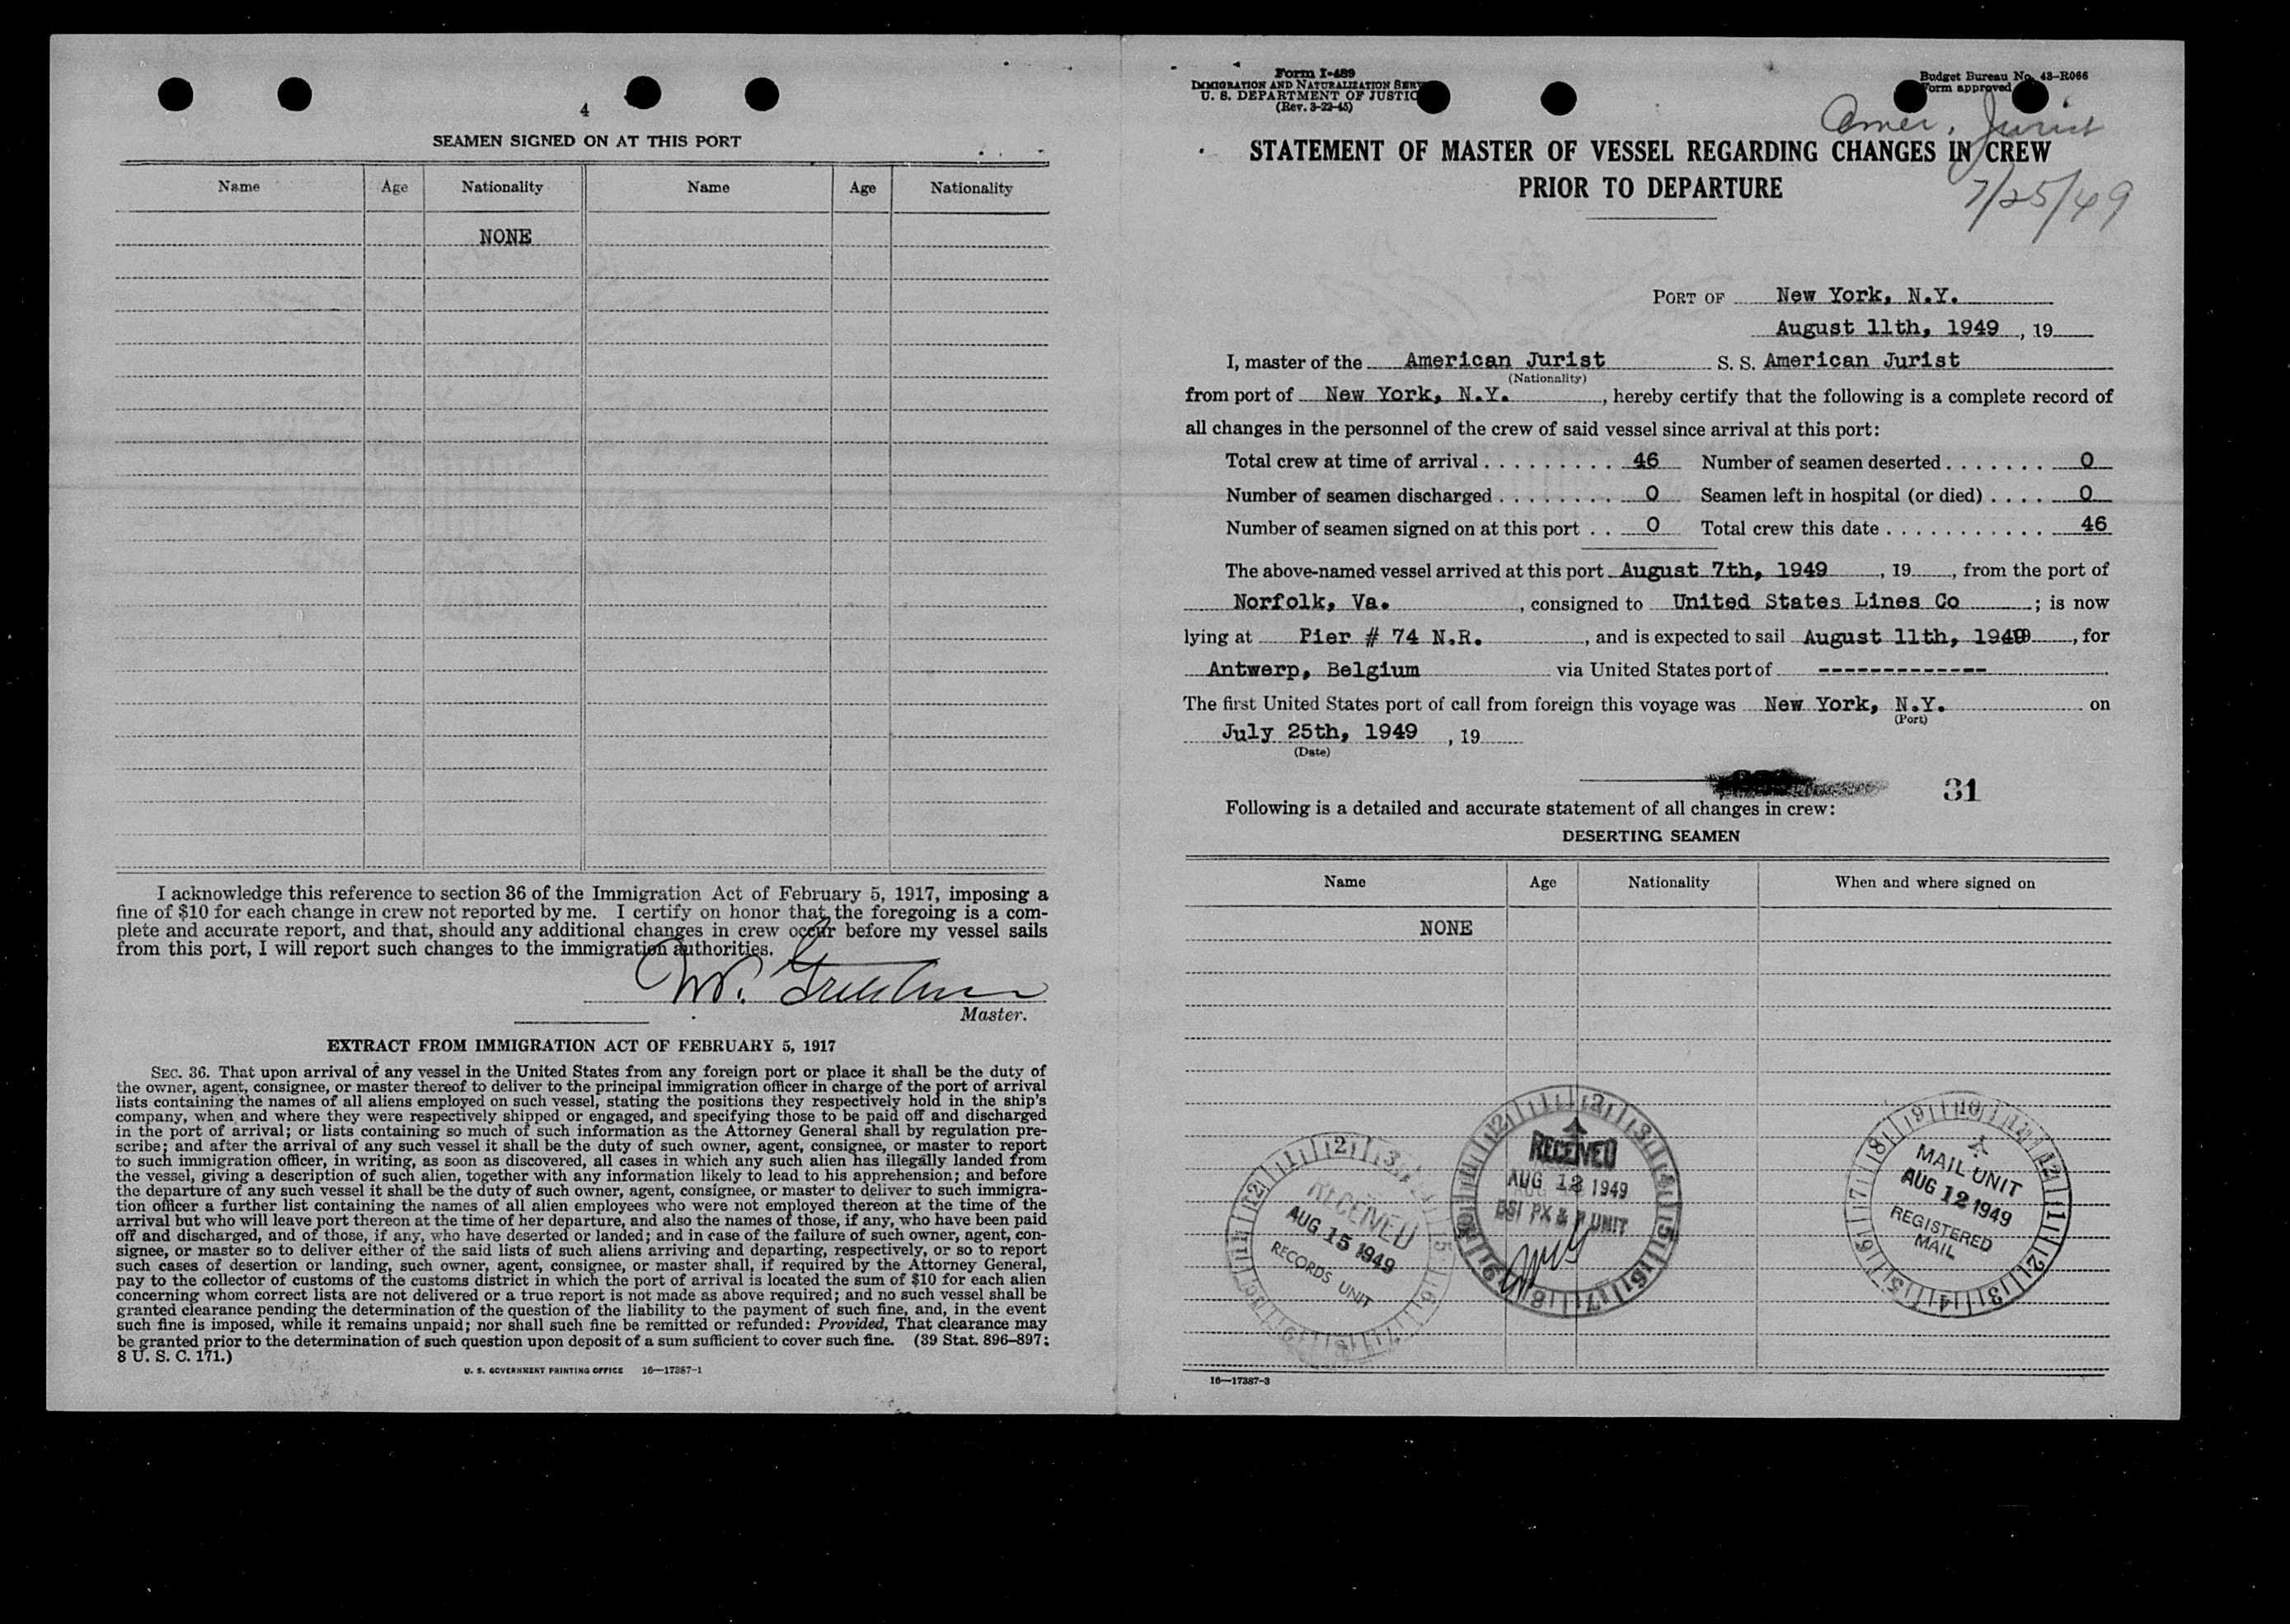 4
SEAMEN SIGNED ON AT THIS PORT
Name Age Nationality Name Age Nationality
NONE
I acknowledge this reference to section 36 of the Immigration Act of February 5, 1917, imposing a
fine of $10 for each change in crew not reported by me. I certify on honor that the foregoing is a com-
plete and accurate report, and that, should any additional changes in crew occur before my vessel sails
from this port, I will report such changes to the immigration authorities.
Master.
EXTRACT FROM IMMIGRATION ACT OF FEBRUARY 5, 1917
SEC. 36. That upon arrival of any vessel in the United States from any foreign port or place it shall be the duty of
the owner, agent, consignee, or master thereof to deliver to the principal immigration officer in charge of the port of arrival
lists containing the names of all aliens employed on such vessel, stating the positions they respectively hold in the ship's
company, when and where they were respectively shipped or engaged, and specifying those to be paid off and discharged
in the port of arrival; or lists containing so much of such information as the Attorney General shall by regulation pre-
scribe; and after the arrival of any such vessel it shall be the duty of such owner, agent, consignee, or master to report
to such immigration officer, in writing, as soon as discovered, all cases in which any such alien has illegally landed from
the vessel, giving a description of such alien, together with any information likely to lead to his apprehension; and before
the departure of any such vessel it shall be the duty of such owner, agent, consignee, or master to deliver to such immigra-
tion officer a further list containing the names of all alien employees who were not employed thereon at the time of the
arrival but who will leave port thereon at the time of her departure, and also the names of those, if any, who have been paid
off and discharged, and of those, if any, who have deserted or landed; and in case of the failure of such owner, agent, con-
signee, or master so to deliver either of the said lists of such aliens arriving and departing, respectively, or so to report
such cases of desertion or landing, such owner, agent, consignee, or master shall, if required by the Attorney General,
pay to the collector of customs of the customs district in which the port of arrival is located the sum of $10 for each alien
concerning whom correct lists are not delivered or a true report is not made as above required; and no such vessel shall be
granted clearance pending the determination of the question of the liability to the payment of such fine, and, in the event
such fine is imposed, while it remains unpaid; nor shall such fine be remitted or refunded: Provided, That clearance may
be granted prior to the determination of such question upon deposit of a sum sufficient to cover such fine. (39 Stat. 896-897;
8 U. S. C. 171.)
U. S. GOVERNMENT PRINTING OFFICE 16—17387-1
Form I-489
IMMIGRATION AND NATURALIZATION SERV
U. S. DEPARTMENT OF JUSTIC
(Rev. 3-22-45)
Budget Bureau No. 43-R066
Form approved
Amer. Jurist
7/25/49
STATEMENT OF MASTER OF VESSEL REGARDING CHANGES IN CREW
PRIOR TO DEPARTURE
PORT OF New York, N.Y.
August 11th, 1949 , 19
I, master of the American Jurist S. S. American Jurist
(Nationality)
from port of New York, N.Y. , hereby certify that the following is a complete record of
all changes in the personnel of the crew of said vessel since arrival at this port:
Total crew at time of arrival . . . . . . . . . 46 Number of seamen deserted . . . . . . . 0
Number of seamen discharged . . . . . . . . 0 Seamen left in hospital (or died) . . . . 0
Number of seamen signed on at this port . . 0 Total crew this date . . . . . . . . . . . 46
The above-named vessel arrived at this port August 7th, 1949 , 19 , from the port of
Norfolk, Va. , consigned to United States Lines Co ; is now
lying at Pier # 74 N.R. , and is expected to sail August 11th, 1949 , for
Antwerp, Belgium via United States port of -------------
The first United States port of call from foreign this voyage was New York, N.Y. on
(Port)
July 25th, 1949 , 19
(Date)
31
Following is a detailed and accurate statement of all changes in crew:
DESERTING SEAMEN
Name Age Nationality When and where signed on
NONE
RECEIVED
AUG 15 1949
RECORDS UNIT
RECEIVED
AUG 12 1949
UNIT
MAIL UNIT
AUG 12 1949
REGISTERED
MAIL
16—17387-3